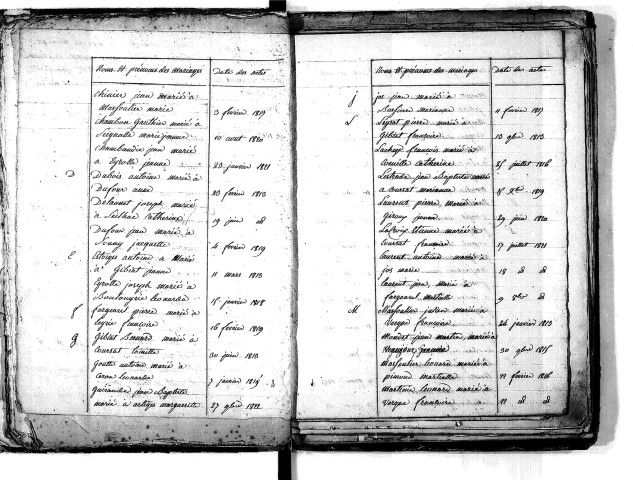 Noms et prénoms des mariages Date des actes
chinier jean marié à
Marfoulier marie 3 février 1817
chambon Gauthier marié à
Seignolle marie jeanne 10 aout 1820
chambaudie jean marié
a Eyrolle jeanne 23 janvier 1821
D Dubois antoine marié à
Dufour anne 20 février 1813
Delannet joseph marié
à catherine 19 juin id
Dufour jean marié à
Souny jacquette 4 février 1819
E Etorges antoine a Marié
à Gibert jeanne 11 mars 1813
Eyrolle joseph marié à
Boulouyrie leonarde 15 janvier 1818
f fargeaut pierre marié à
françoise 16 février 1819
g Gibert Bernard marié à
Coursat 30 juin 1813
Goutte antoine marié à
leonarde 7 janvier 1819
guéraudie jean Baptiste
marié à marguerite 27 9bre 1822
Noms et prénoms des mariages Date des actes
j jos jean marié à
Dufour marianne 11 février 1817
L pierre marié à
Gibert françoise 13 9bre 1813
françois marié à
catherine 25 juillet 1816
jean Baptiste marié
a Coursat marianne 15 Xbre 1819
Laureut pierre marié à
jeanne 29 juin 1820
Lacroix Etienne marié à
Coursat françoise 17 juillet 1821
Laurent antoine marié à
jos marie 18 id id
Laurent jean, marié à
fargeaut, 9 8bre id
M Marfoulier julien marié à
Vergne françoise 26 janvier 1813
jean martin marié à
30 9bre 1815
Marfoulier leonard marié à
12 février 1816
Martinie leonard marié à
Vergne françoise 22 id id